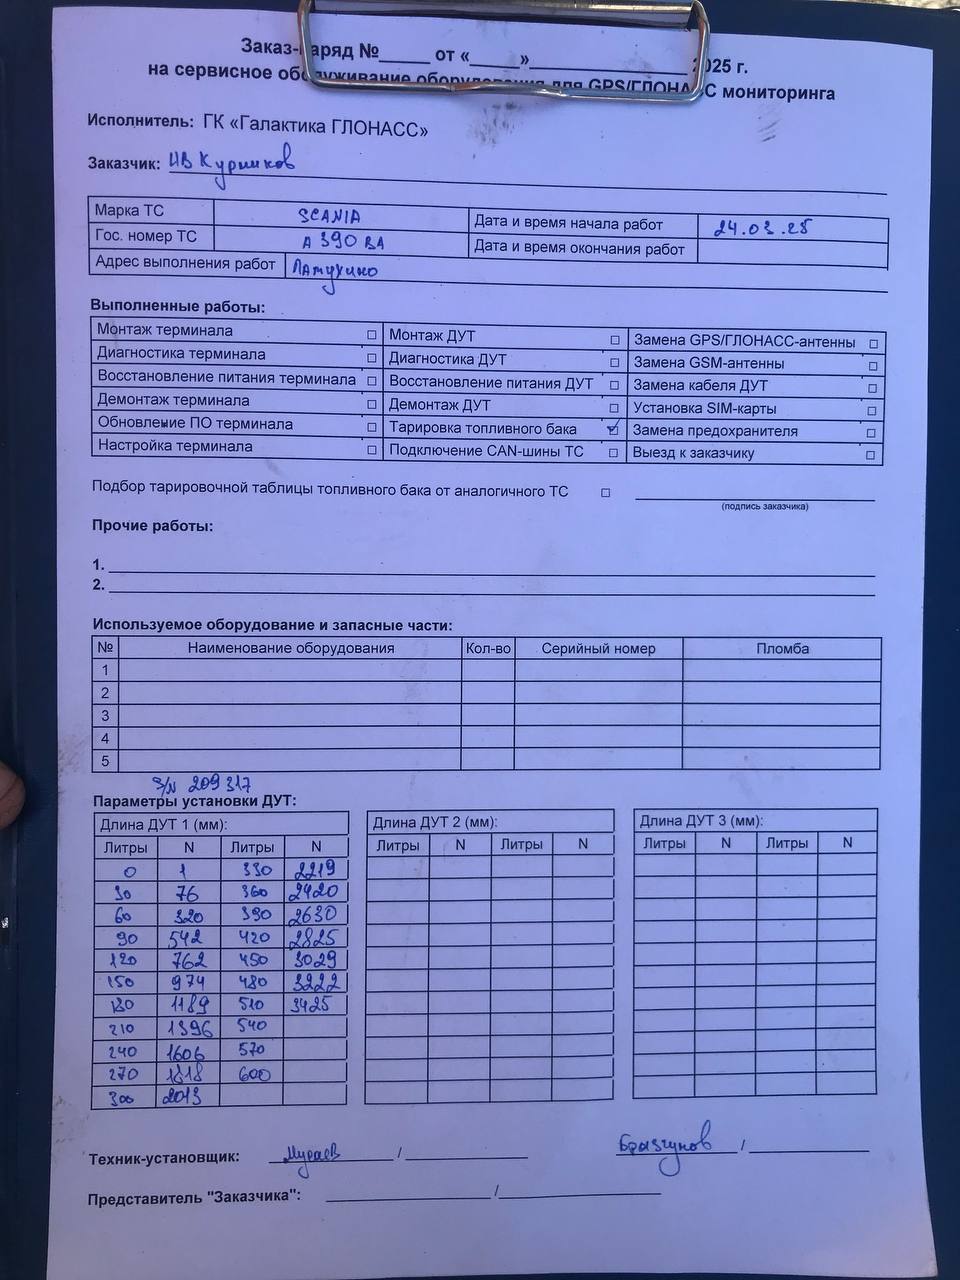 Заказ-наряд №_____ от «_____»________________ 2025 г.
на сервисное обслуживание оборудования для GPS/ГЛОНАСС мониторинга
Исполнитель: ГК «Галактика ГЛОНАСС»
Заказчик: ИВ Курников
Марка ТС SCANIA Дата и время начала работ 24.03.25
Гос. номер ТС А 390 ВА Дата и время окончания работ
Адрес выполнения работ Патухино
Выполненные работы:
Монтаж терминала □ Монтаж ДУТ □ Замена GPS/ГЛОНАСС-антенны □
Диагностика терминала □ Диагностика ДУТ □ Замена GSM-антенны □
Восстановление питания терминала □ Восстановление питания ДУТ □ Замена кабеля ДУТ □
Демонтаж терминала □ Демонтаж ДУТ □ Установка SIM-карты □
Обновление ПО терминала □ Тарировка топливного бака ☑ Замена предохранителя □
Настройка терминала □ Подключение CAN-шины ТС □ Выезд к заказчику □
Подбор тарировочной таблицы топливного бака от аналогичного ТС □
(подпись заказчика)
Прочие работы:
1.
2.
Используемое оборудование и запасные части:
№ Наименование оборудования Кол-во Серийный номер Пломба
1
2
3
4
5
S/N 209317
Параметры установки ДУТ:
Длина ДУТ 1 (мм): Длина ДУТ 2 (мм): Длина ДУТ 3 (мм):
Литры N Литры N Литры N Литры N Литры N Литры N
0 1 330 2219
30 76 360 2420
60 320 390 2630
90 542 420 2825
120 762 450 3029
150 974 480 3222
180 1189 510 3425
210 1396 540
240 1606 570
270 1818 600
300 2013
Техник-установщик: Мураев / Бразгунов /
Представитель "Заказчика": /